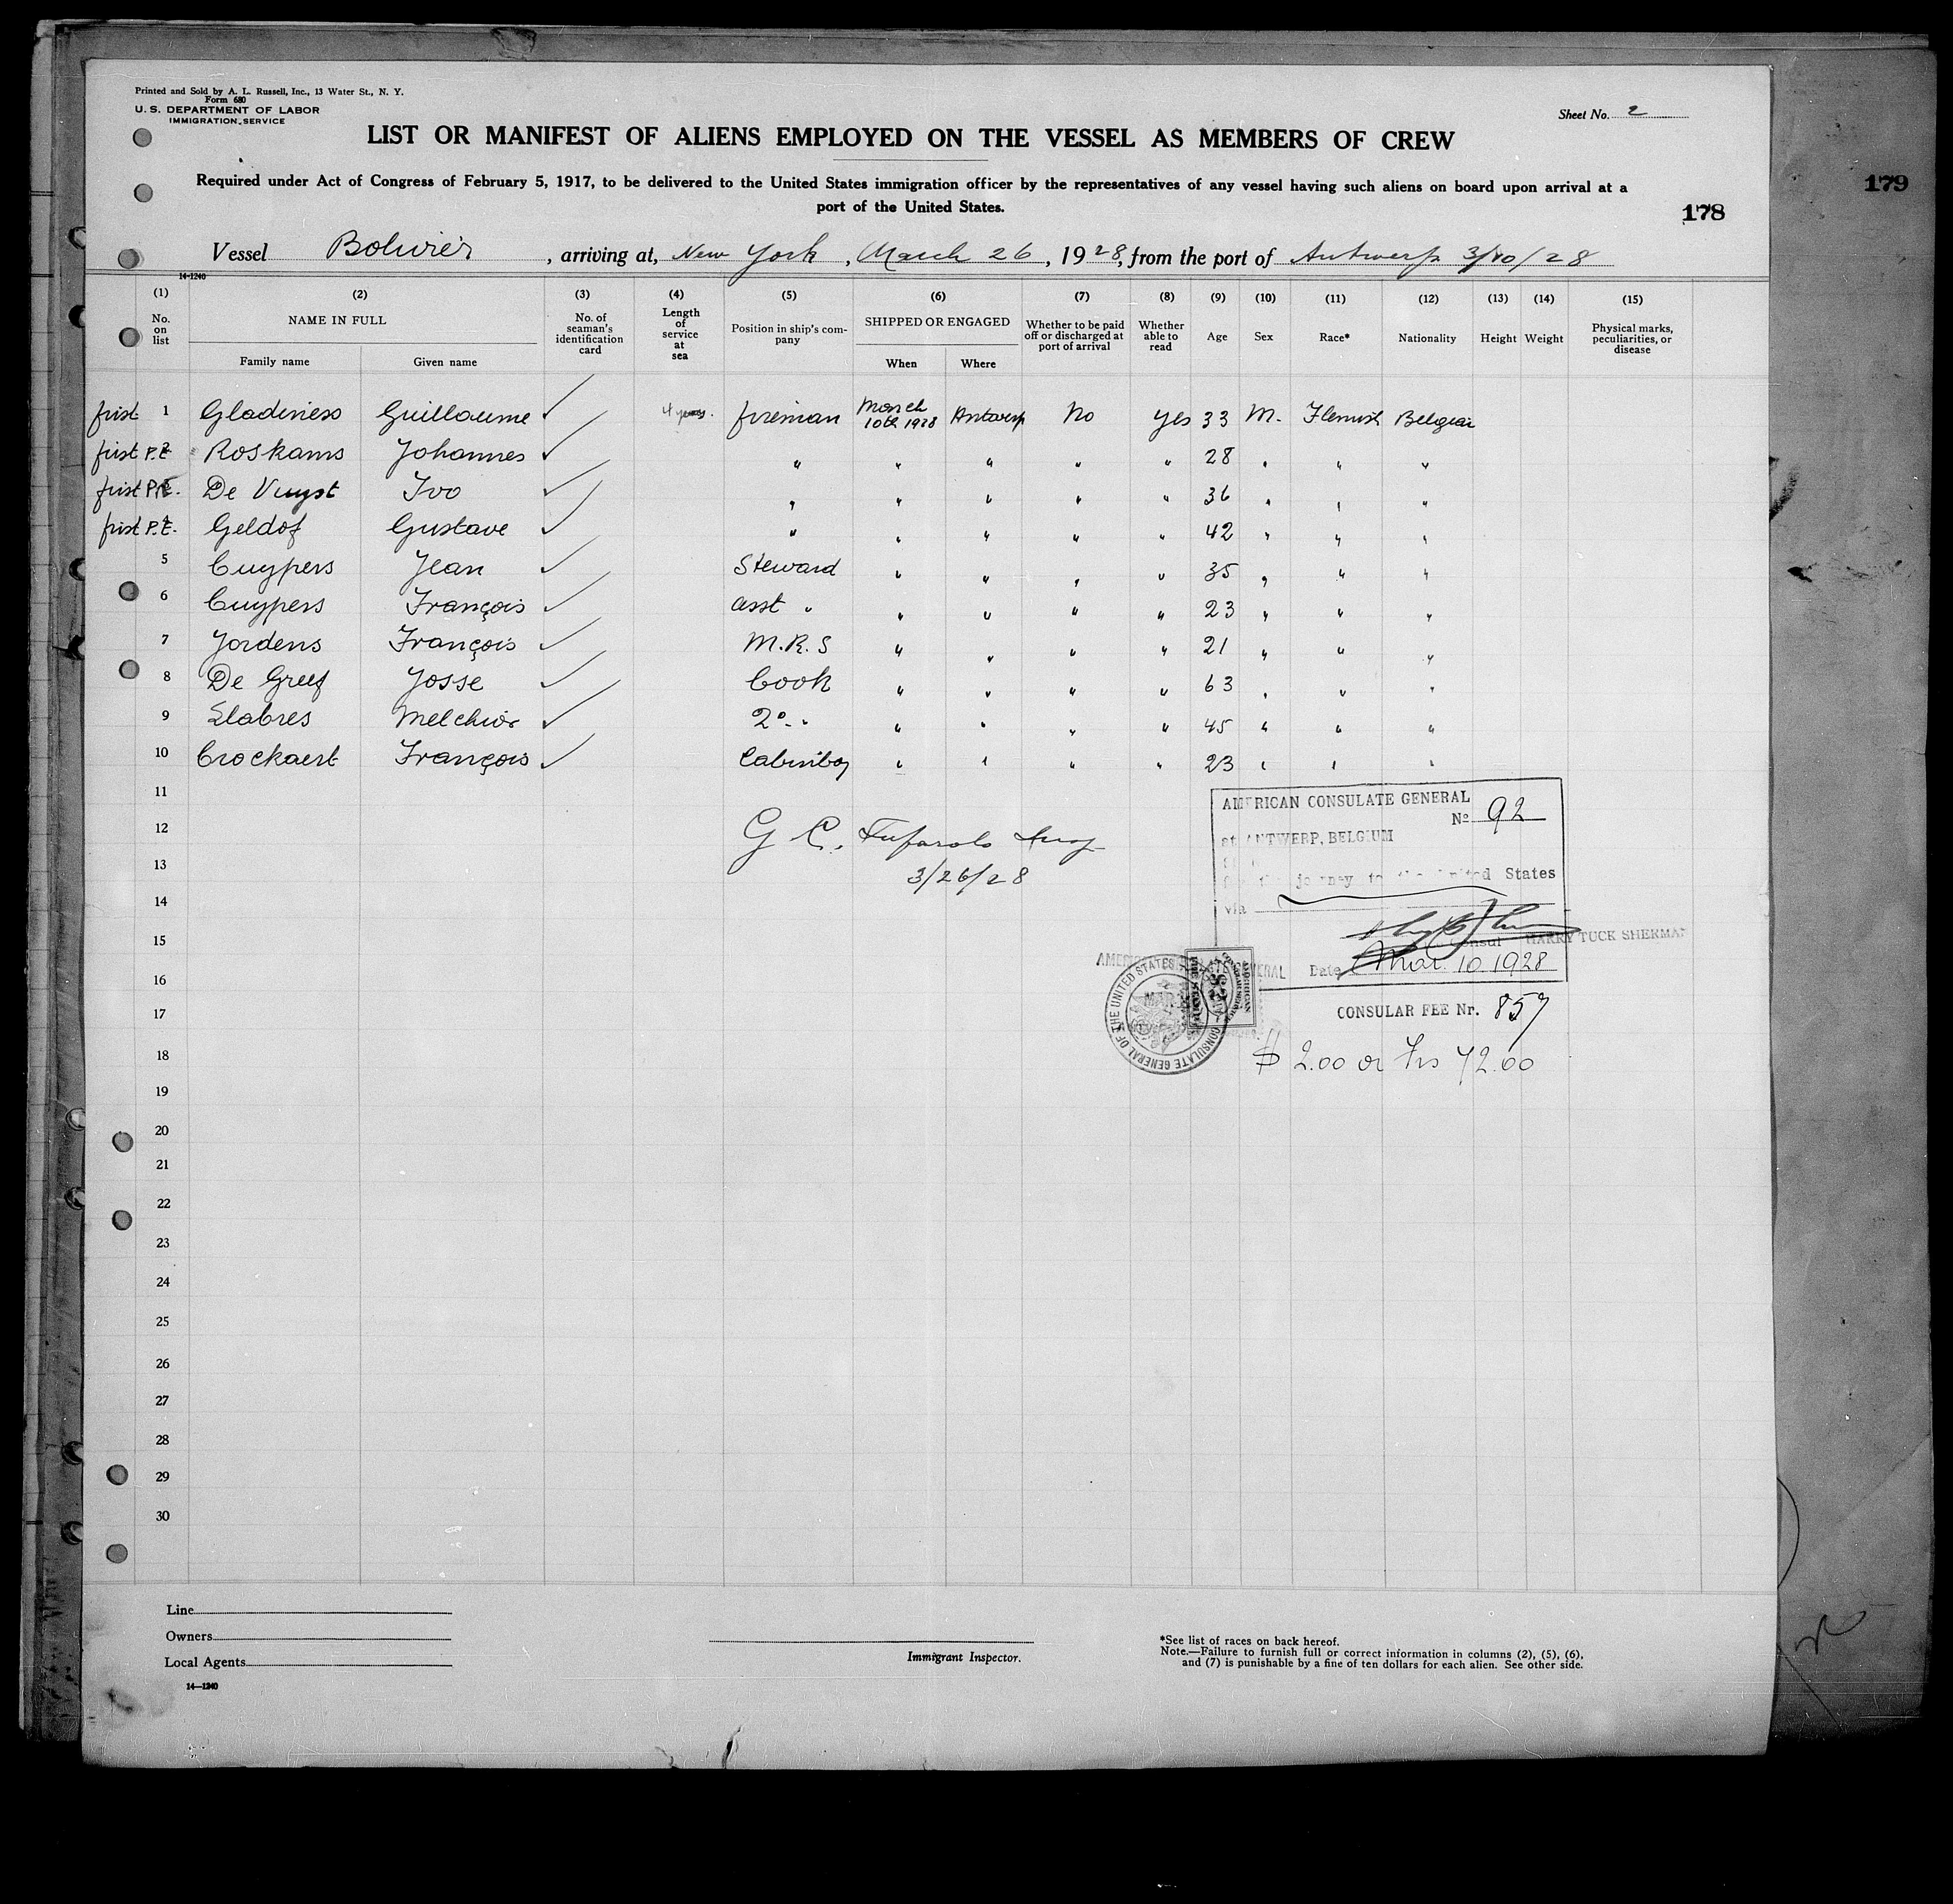 Printed and Sold by A. L. Russell, Inc., 13 Water St., N. Y.
Form 680
U. S. DEPARTMENT OF LABOR
IMMIGRATION SERVICE
Sheet No. 2
LIST OR MANIFEST OF ALIENS EMPLOYED ON THE VESSEL AS MEMBERS OF CREW
Required under Act of Congress of February 5, 1917, to be delivered to the United States immigration officer by the representatives of any vessel having such aliens on board upon arrival at a
port of the United States.
179
178
Vessel Bolivier, arriving at, New York, March 26, 1928, from the port of Antwerp 3/10/28
14-1240
(1) (2) (3) (4) (5) (6) (7) (8) (9) (10) (11) (12) (13) (14) (15)
No. on list NAME IN FULL Family name Given name No. of seaman's identification card Length of service at sea Position in ship's company SHIPPED OR ENGAGED When Where Whether to be paid off or discharged at port of arrival Whether able to read Age Sex Race* Nationality Height Weight Physical marks, peculiarities, or disease
first 1 Gladiness Guillaume ✓ 4 years. fireman March 10th 1928 Antwerp No yes 33 M. Flemish Belgian
first P.E. Roskams Johannes ✓ " " " " " 28 " " "
first P.E. De Vuyst Ivo ✓ " " " " " 36 " " "
first P.E. Geldof Gustave ✓ " " " " " 42 " " "
5 Cuypers Jean ✓ Steward " " " " 35 " " "
6 Cuypers François ✓ asst " " " " " 23 " " "
7 Jordens François ✓ M.R.S " " " " 21 " " "
8 De Greef Josse ✓ Cook " " " " 63 " " "
9 Llabres Melchior ✓ 2° " " " " " 45 " " "
10 Crockaert François ✓ Cabinboy " " " " 23 " " "
11
12
13
14
15
16
17
18
19
20
21
22
23
24
25
26
27
28
29
30
G C.
3/26/28
AMERICAN CONSULATE GENERAL
No 92
at ANTWERP, BELGIUM
journey to the United States
via
Consul HARRY TUCK SHERMAN
Date Mar. 10 1928
CONSULAR FEE Nr. 857
$ 2.00 or Frs 72.00
CONSULATE GENERAL OF THE UNITED STATES
MAR
Line
Owners
Local Agents
14—1240
Immigrant Inspector.
*See list of races on back hereof.
Note.—Failure to furnish full or correct information in columns (2), (5), (6),
and (7) is punishable by a fine of ten dollars for each alien. See other side.